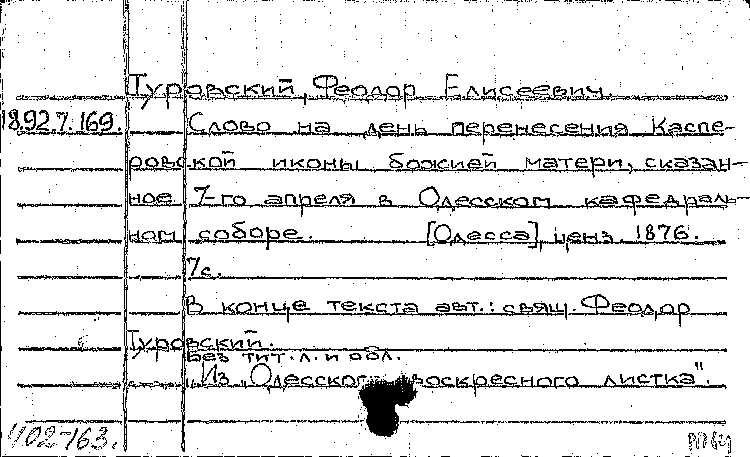 Туровский, Феодор Елисеевич.
18.92.7.169. Слово на день перенесения Каспе-
ровской иконы божией матери, сказан-
ное 7-го апреля в Одесском кафедраль-
ном соборе. [Одесса], ценз. 1876.
7с.
В конце текста авт.: свящ. Феодор
Туровский.
Без тит. л. и обл.
"Из "Одесского воскресного листка".
402-163.